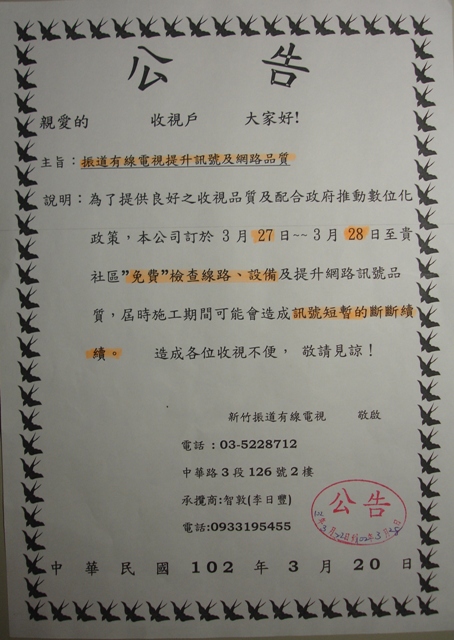 公告
親愛的 收視戶 大家好!
主旨：振道有線電視提升訊號及網路品質
說明：為了提供良好之收視品質及配合政府推動數位化
政策，本公司訂於 3 月 27 日~~ 3 月 28 日至貴
社區"免費"檢查線路、設備及提升網路訊號品
質，屆時施工期間可能會造成訊號短暫的斷斷續
續。 造成各位收視不便， 敬請見諒！
新竹振道有線電視 敬啟
電話：03-5228712
中華路 3 段 126 號 2 樓
承攬商:智敦(李日豐)
電話:0933195455
公告
中華民國 102 年 3 月 20 日